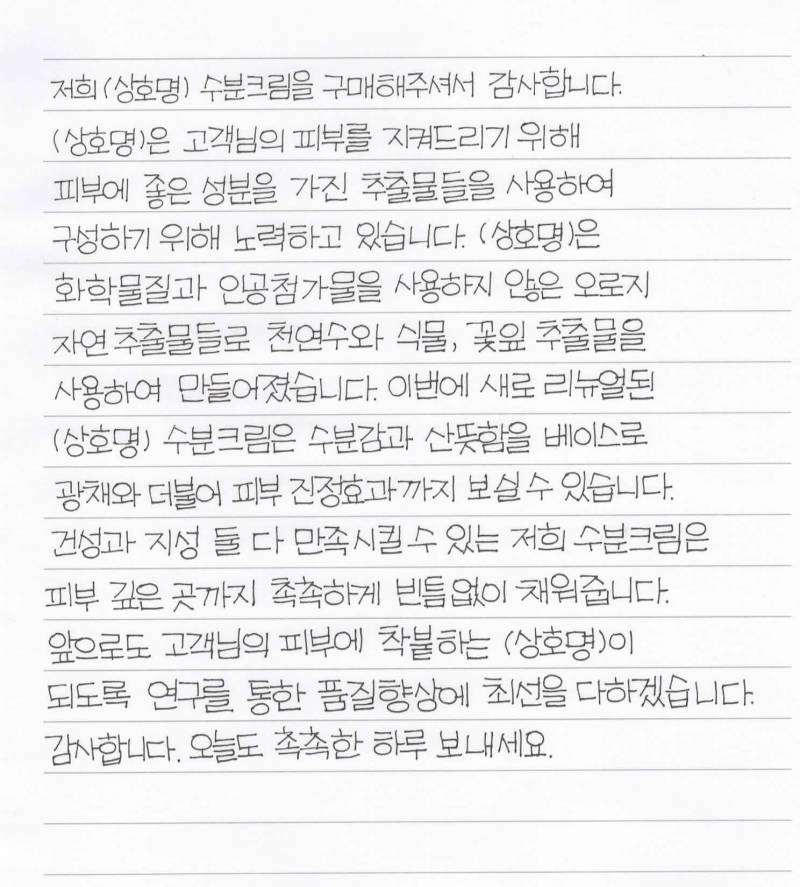 저희 (상호명) 수분크림을 구매해주셔서 감사합니다.
(상호명)은 고객님의 피부를 지켜드리기 위해
피부에 좋은 성분을 가진 추출물들을 사용하여
구성하기 위해 노력하고 있습니다. (상호명)은
화학물질과 인공첨가물을 사용하지 않은 오로지
자연 추출물들로 천연수와 식물, 꽃잎 추출물을
사용하여 만들어졌습니다. 이번에 새로 리뉴얼된
(상호명) 수분크림은 수분감과 산뜻함을 베이스로
광채와 더불어 피부 진정효과까지 보실 수 있습니다.
건성과 지성 둘 다 만족시킬 수 있는 저희 수분크림은
피부 깊은 곳까지 촉촉하게 빈틈없이 채워줍니다.
앞으로도 고객님의 피부에 착붙하는 (상호명)이
되도록 연구를 통한 품질향상에 최선을 다하겠습니다.
감사합니다. 오늘도 촉촉한 하루 보내세요.